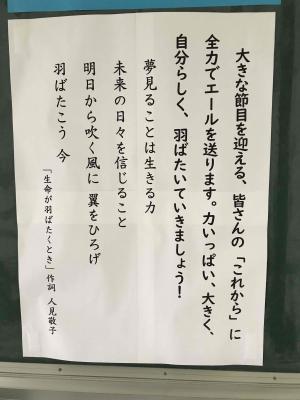 大きな節目を迎える、皆さんの「これから」に
全力でエールを送ります。力いっぱい、大きく、
自分らしく、羽ばたいていきましょう！
夢見ることは生きる力
未来の日々を信じること
明日から吹く風に 翼をひろげ
羽ばたこう 今
「生命が羽ばたくとき」作詞 人見敬子